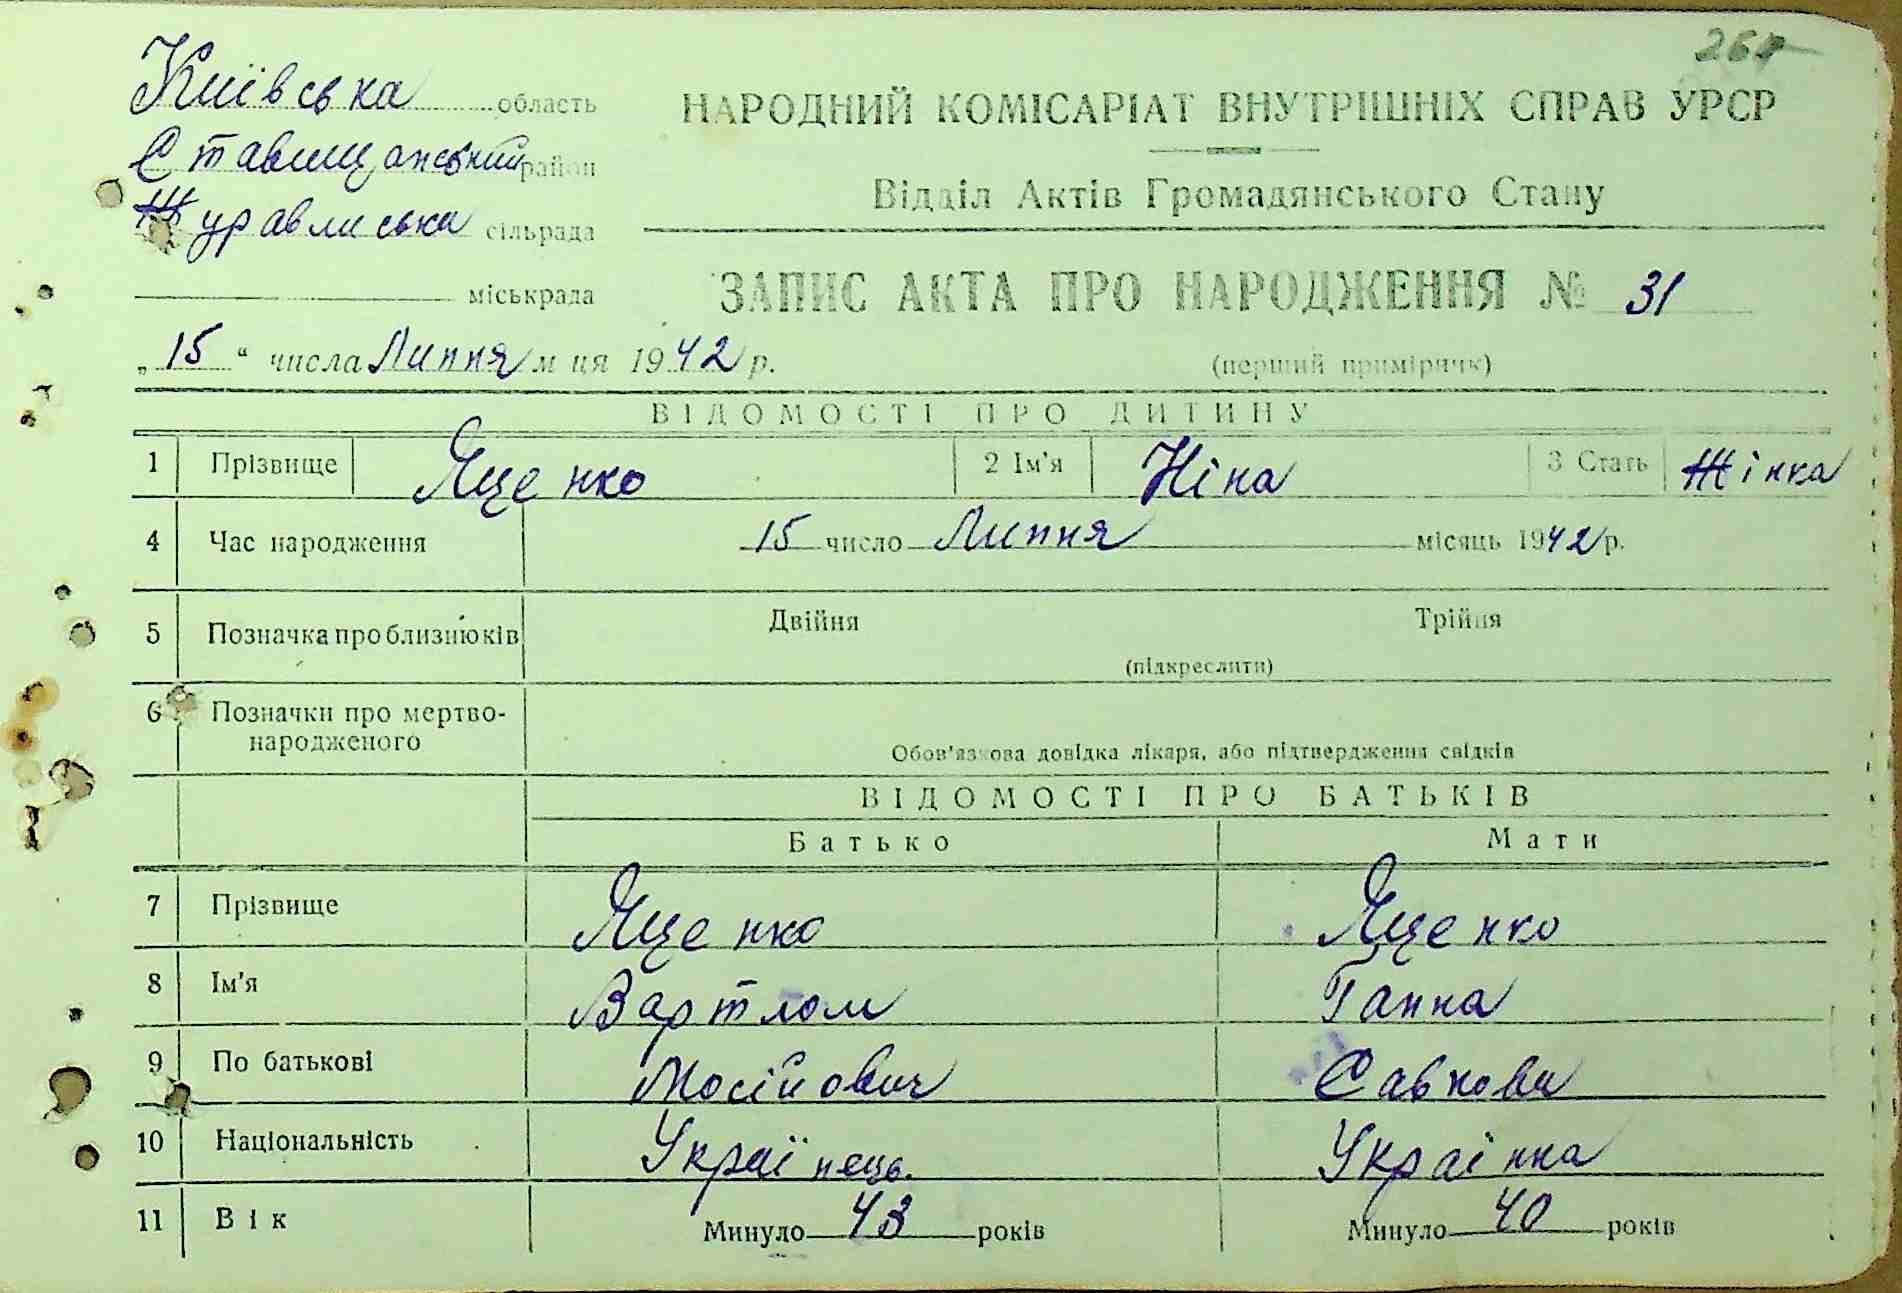 Київська область
Ставищанський район
Журавлиська сільрада
міськрада
НАРОДНИЙ КОМІСАРІАТ ВНУТРІШНІХ СПРАВ УРСР
Відділ Актів Громадянського Стану
ЗАПИС АКТА ПРО НАРОДЖЕННЯ № 31
„15“ числа Липня м ця 1942 р.
(перший примірник)
ВІДОМОСТІ ПРО ДИТИНУ
1 Прізвище Яценко 2 Ім'я Ніна 3 Стать Жінка
4 Час народження 15 число Липня місяць 1942 р.
5 Позначка про близнюків Двійня Трійня
(підкреслити)
6 Позначки про мертво-
народженого
Обов'язкова довідка лікаря, або підтвердження свідків
ВІДОМОСТІ ПРО БАТЬКІВ
Батько Мати
7 Прізвище Яценко Яценко
8 Ім'я Вартлом Ганна
9 По батькові Мосійович Савкова
10 Національність Українець. Українка
11 Вік Минуло 43 років Минуло 40 років